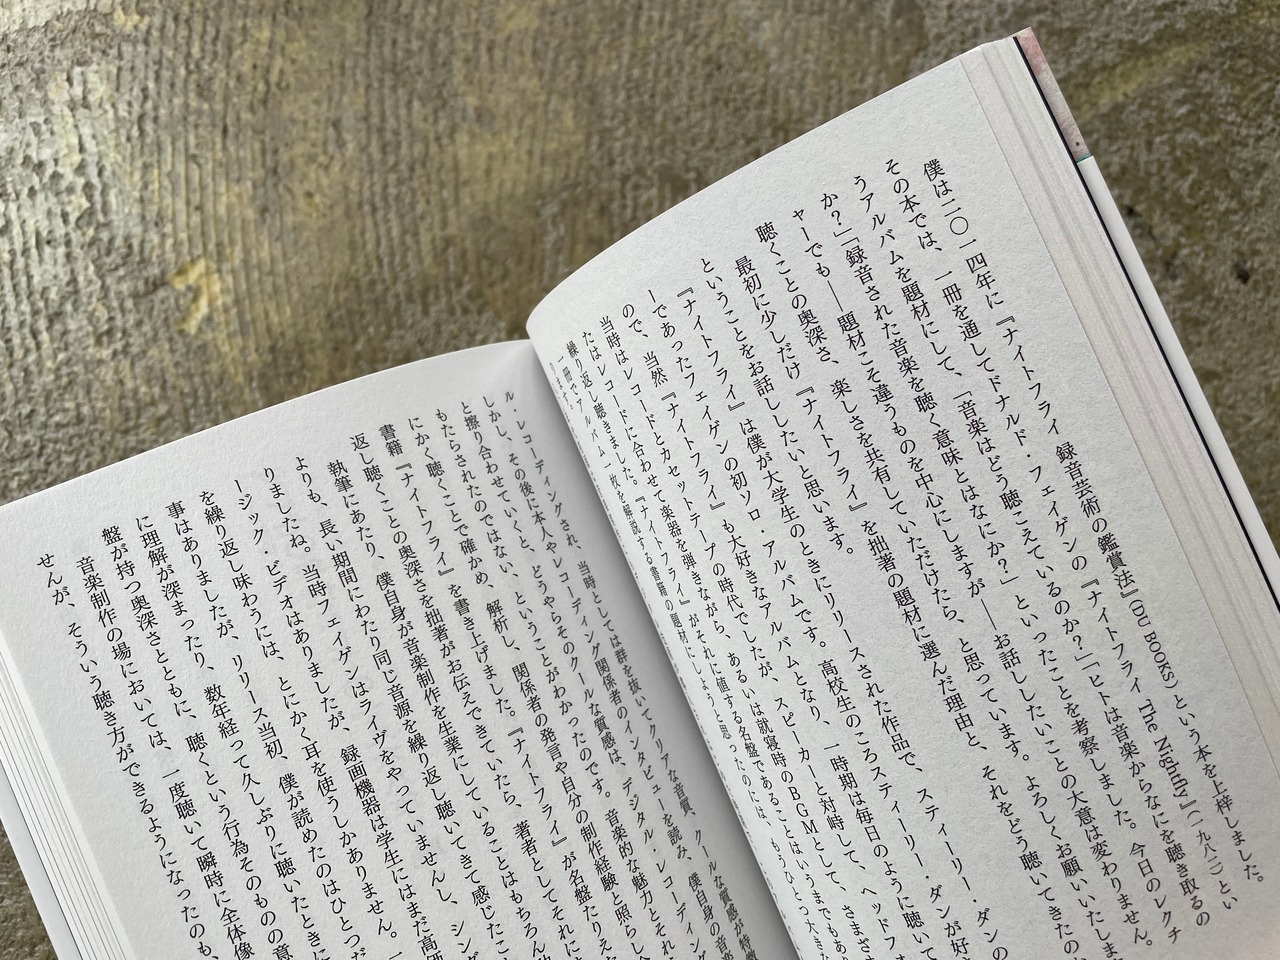 僕は二〇一四年に『ナイトフライ 録音芸術の鑑賞法』(DU BOOKS)という本を上梓しました。
その本では、一冊を通してドナルド・フェイゲンの『ナイトフライ The Nightfly』(一九八二)とい
うアルバムを題材にして、「音楽はどう聴こえているのか?」「ヒトは音楽からなにを聴き取るの
か?」「録音された音楽を聴く意味とはなにか?」といったことを考察しました。今日のレクチ
ャーでも——題材こそ違うものを中心にしますが——お話ししたいことの大意は変わりません。
聴くことの奥深さ、楽しさを共有していただけたら、と思っています。よろしくお願いいたしま
最初に少しだけ『ナイトフライ』を拙著の題材に選んだ理由と、それをどう聴いてきたのか
ということをお話ししたいと思います。
『ナイトフライ』は僕が大学生のときにリリースされた作品で、スティーリー・ダンの
ーであったフェイゲンの初ソロ・アルバムです。高校生のころスティーリー・ダンが好
ので、当然『ナイトフライ』も大好きなアルバムとなり、一時期は毎日のように聴いて
当時はレコードとカセットテープの時代でしたが、スピーカーと対峙して、ヘッドフ
たはレコードに合わせて楽器を弾きながら、あるいは就寝時のBGMとして、さまざ
繰り返し聴きました。『ナイトフライ』がそれに値する名盤であることはいうまでもあり
一冊でアルバム一枚を解説する書籍の題材にしようと思ったのには、もうひとつ大きな
ル・レコーディングされ、当時としては群を抜いてクリアな音質、クールな質感が特徴
しかし、その後に本人やレコーディング関係者のインタビューを読み、僕自身の音楽
と擦り合わせていくと、どうやらそのクールな質感は、デジタル・レコーディング
もたらされたのではない、ということがわかったのです。音楽的な魅力とそれ
にかく聴くことで確かめ、解析し、関係者の発言や自分の制作経験と照らし合
書籍『ナイトフライ』を書き上げました。『ナイトフライ』が名盤たりえ
返し聴くことの奥深さを拙著がお伝えできていたら、著者としてそれに
執筆にあたり、僕自身が音楽制作を生業にしていることはもちろん
よりも、長い期間にわたり同じ音源を繰り返し聴いてきて感じたこ
りましたね。当時フェイゲンはライヴをやっていませんし、シン
ージック・ビデオはありましたが、録画機器は学生にはまだ高価
を繰り返し味わうには、とにかく耳を使うしかありません。
事はありましたが、リリース当初、僕が読めたのはひとつだ
に理解が深まったり、数年経って久しぶりに聴いたときに
盤が持つ奥深さとともに、聴くという行為そのものの意
音楽制作の場においては、一度聴いて瞬時に全体像
せんが、そういう聴き方ができるようになったのも、